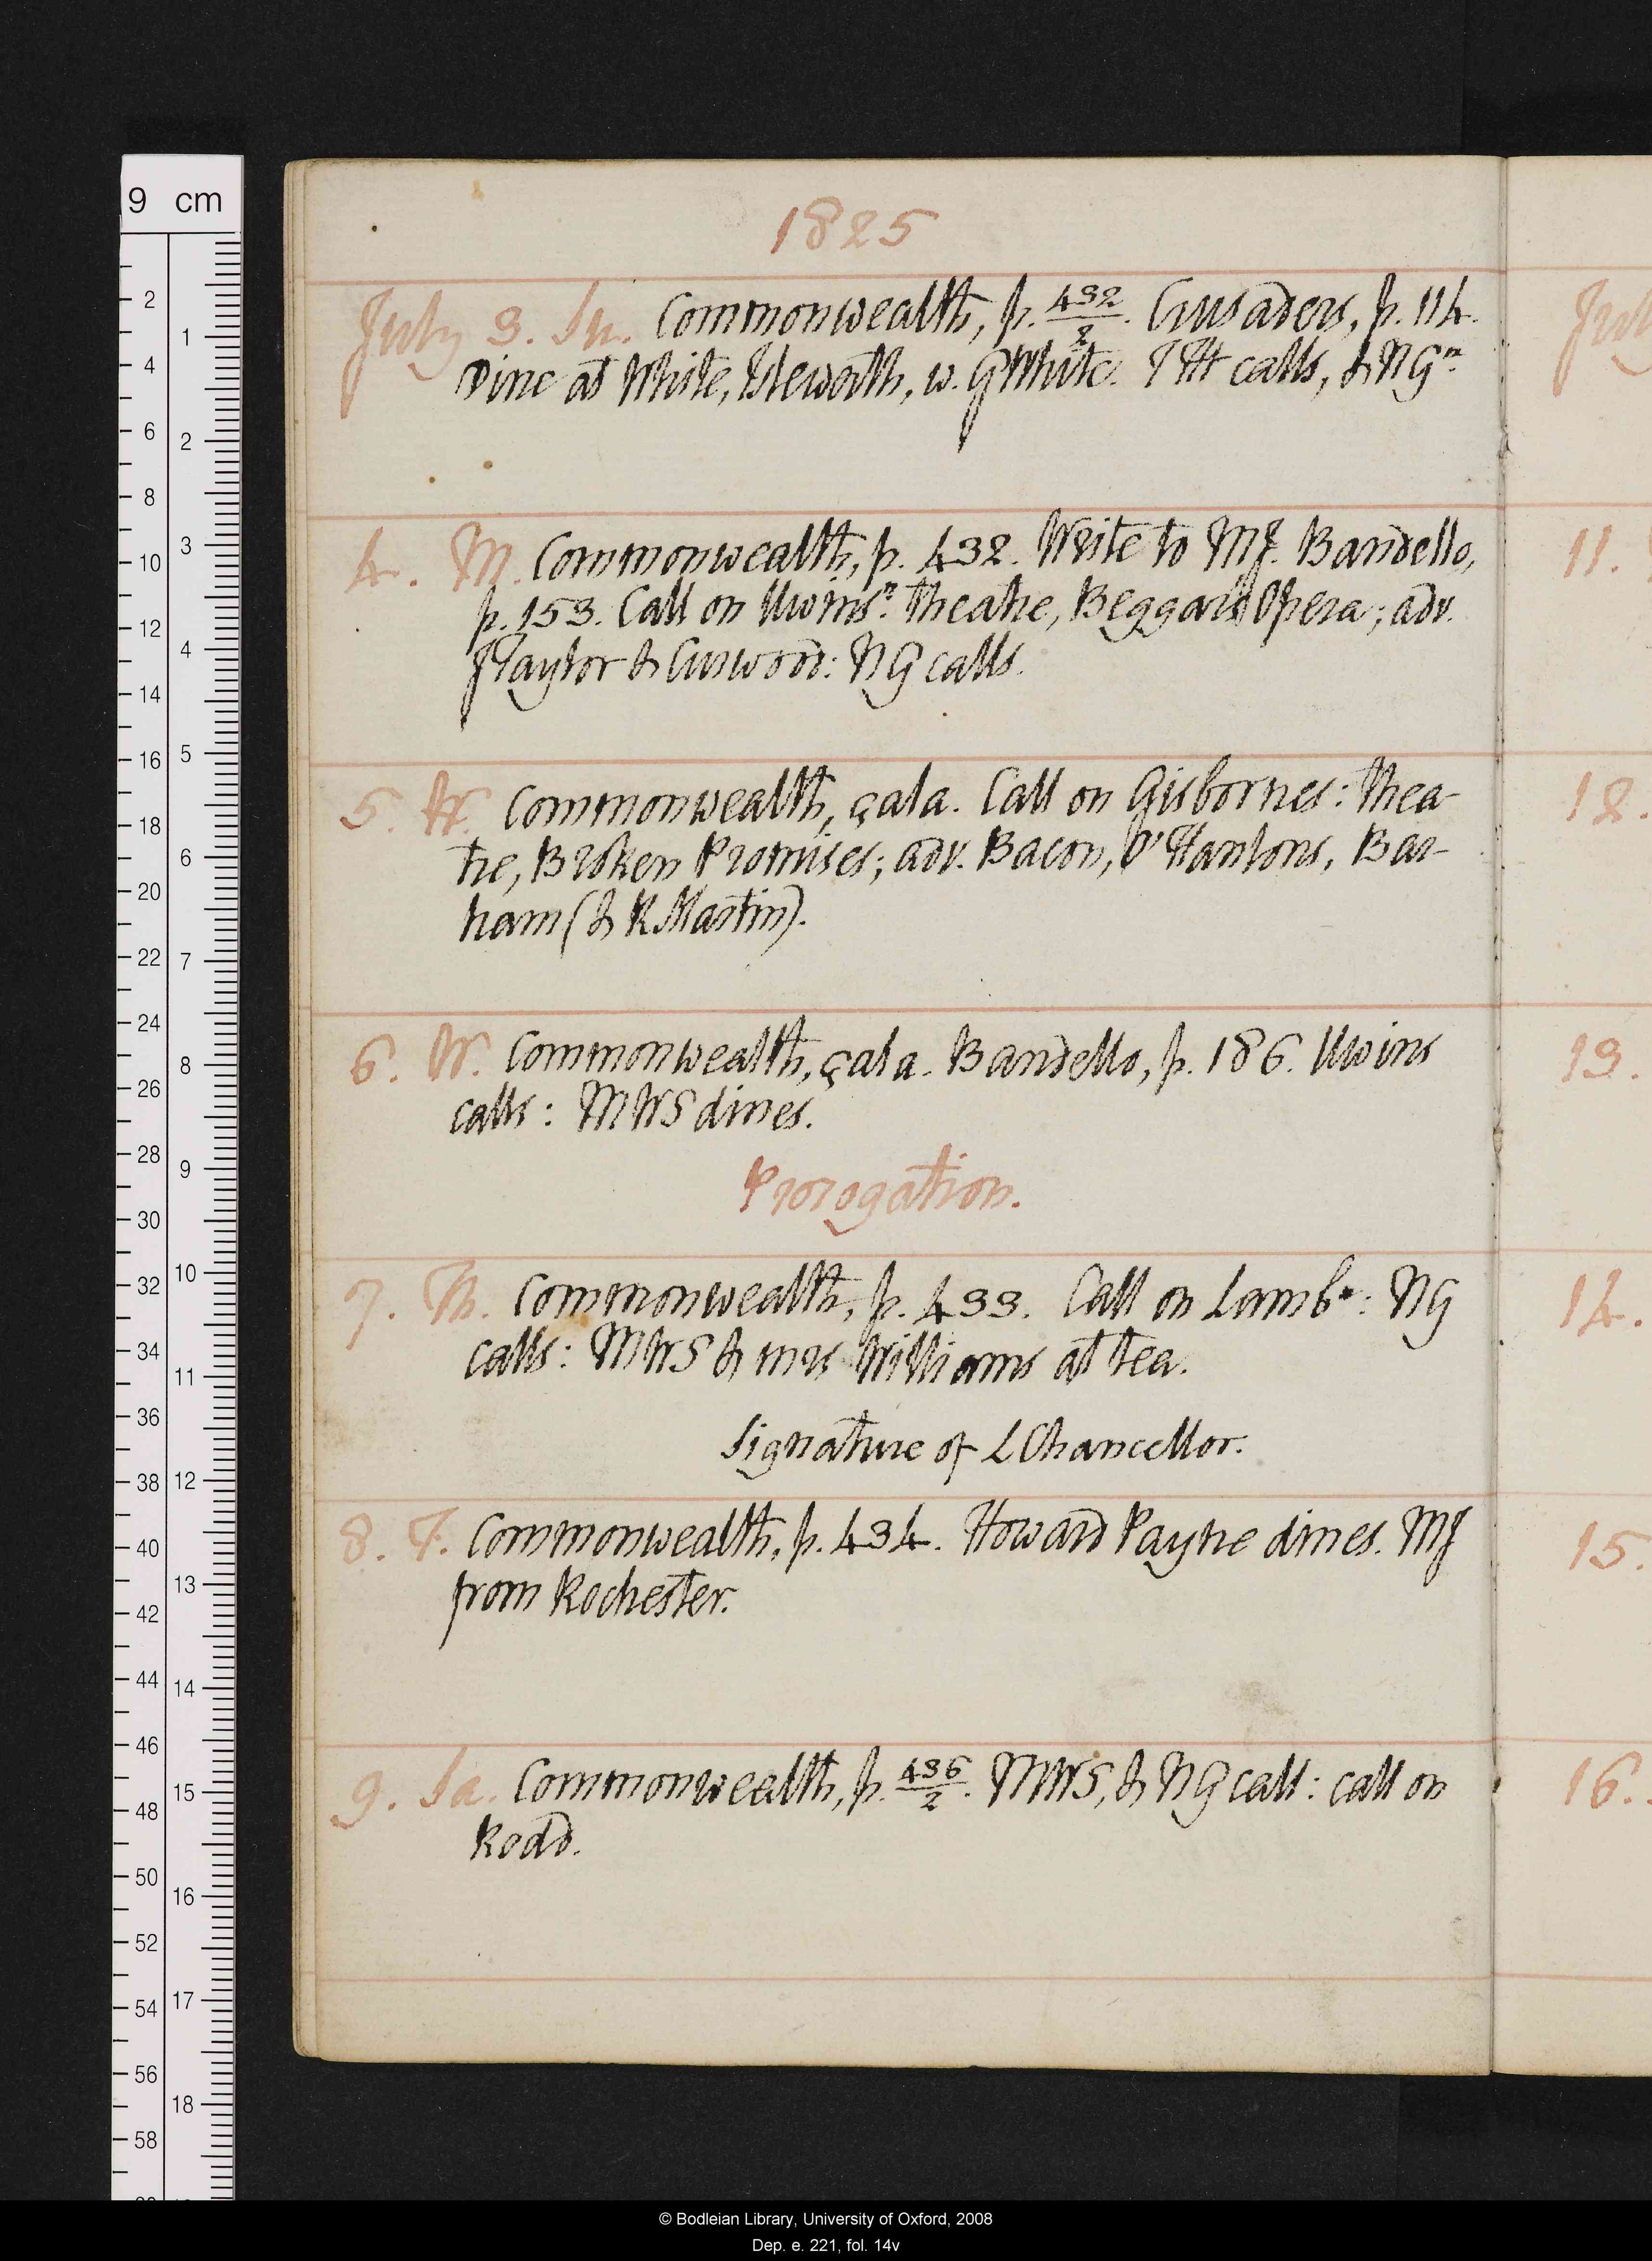 9 cm
1825
July 3. Su. Commonwealth, p. 432/2. Crusaders, p. 114.
Dine at White, Isleworth, w. GWhite. TJH calls, & NGⁿ
4. M. Commonwealth, p. 432. Write to MJ. Bandello,
p. 153. Call on Uwinsⁿ: theatre, Beggars Opera; adv.
JTaylor & Curwood: NG calls.
5. Tu. Commonwealth, çala. Call on Gisbornes: thea-
tre, Broken Promises; adv. Bacon, O'Hanlons, Bar-
ham (& R Martin).
6. W. Commonwealth, çala. Bandello, p. 186. Uwins
calls: MWS dines.
Prorogation.
7. Th. Commonwealth, p. 433. Call on Lambⁿ: NG
calls: MWS & mrs Williams at tea.
Signature of LChancellor.
8. F. Commonwealth, p. 434. Howard Payne dines. MJ
from Rochester.
9. Sa. Commonwealth, p. 436/2. MWS, & NG call: call on
Rodd.
11.
12.
13.
14.
15.
16.
© Bodleian Library, University of Oxford, 2008
Dep. e. 221, fol. 14v